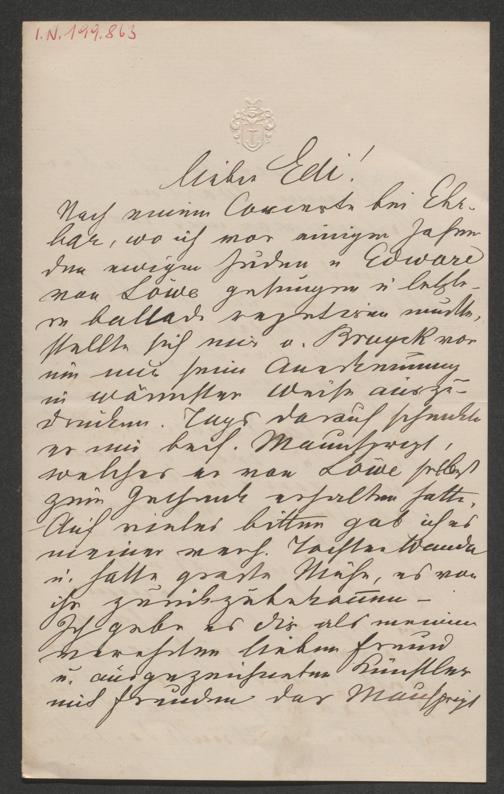 I.N. 199.863
Lieber Edi!
Nach einem Concerte bei Ehr-
bar, wo ich vor einigen Jahren
den ewigen Juden u Edward
von Löwe gesungen u letzte-
re Ballade repetiren mußte,
stellte sich mir v. Bruyck vor
um mir seine Anerkennung
in wärmster Weise auszu-
drücken. Tags darauf schenkte
er mir beil. Manuscript,
welches er von Löwe selbst
zum Geschenk erhalten hatte.
Auf vieles bitten gab ich es
meiner verh. Tochter Wanda
u. hatte große Mühe, es von
ihr zurückzubekommen –
Ich gebe es dir als meinem
verehrten lieben Freund
u. ausgezeichneten Künstler
mit Freuden das Manuscript